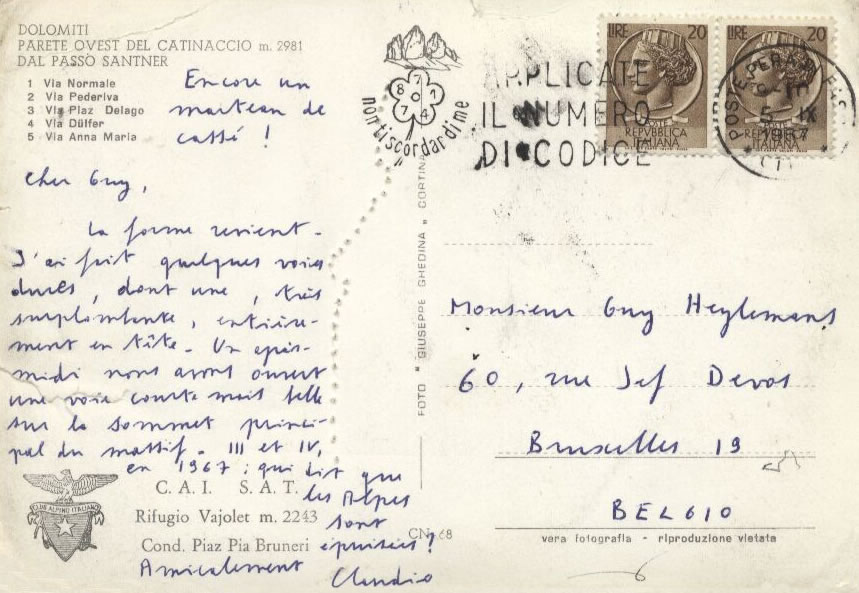 DOLOMITI
PARETE OVEST DEL CATINACCIO m. 2981
DAL PASSO SANTNER
1 Via Normale
2 Via Pederiva
3 Via Piaz Delago
4 Via Dülfer
5 Via Anna Maria
Encore un
marteau de
cassé !
Cher Guy,
La forme revient -
J'ai fait quelques voies
dures, dont une, très
surplombante, entière-
ment en tête - Un après-
midi nous avons ouvert
une voie courte mais belle
sur le sommet princi-
pal du massif - III et IV,
en 1967 ; qui dit que
les Alpes
sont
épuisées ?
Amicalement
Claudio
CLUB ALPINO ITALIANO
C. A. I. S. A. T.
Rifugio Vajolet m. 2243
Cond. Piaz Pia Bruneri
CN 68
FOTO " GIUSEPPE GHEDINA " CORTINA
nontiscordardime
APPLICATE
IL NUMERO
DI CODICE
LIRE 20
REPVBBLICA
ITALIANA
LIRE 20
REPVBBLICA
ITALIANA
5 IX
1967
Monsieur Guy Heylemans
60, rue Jef Devos
Bruxelles 19
BELGIO
vera fotografia - riproduzione vietata